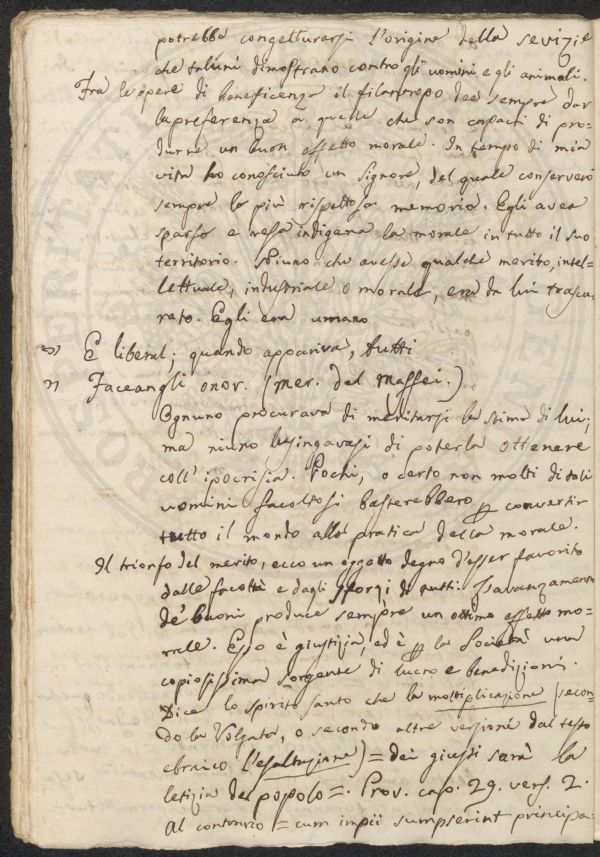 potrebbe congetturarsi l'origine della sevizie
che taluni dimostrano contro gli uomini e gli animali.
Fra le opere di beneficenza il filantropo dee sempre dar
la preferenza a quelle che son capaci di pro=
durre un buon effetto morale. In tempo di mia
vita ho conosciuto un Signore, del quale conserverò
sempre la più rispettosa memoria. Egli avea
sparso e resa indigena la morale in tutto il suo
territorio. Niuno che avesse qualche merito, intel=
lettuale, industriale o morale, era da lui trascu=
rato. Egli era umano
" E liberal; quando appariva, tutti
" Faceangli onor. (Mer. del Maffei.)
Ognuno procurava di meritarsi la stima di lui;
ma niuno lusingavasi di poterla ottenere
coll'ipocrisia. Pochi, o certo non molti di tali
uomini facoltosi basterebbero p convertir
tutto il mondo alla pratica della morale.
Il trionfo del merito, ecco un oggetto degno d'esser favorito
dalle facoltà e dagli sforzi di tutti. L'avanzamento
de' buoni produce sempre un ottimo effetto mo=
rale. Esso è giustizia, ed è p la Società una
copiosissima sorgente di lucro e benedizioni.
Dice lo spirito santo che la moltiplicazione (secon=
do la Volgata, o secondo altre versioni dal testo
ebraico l'esaltazione) = dei giusti sarà la
letizia del popolo =. Prov. cap. 29. vers. 2.
Al contrario = cum impii sumpserint principa=